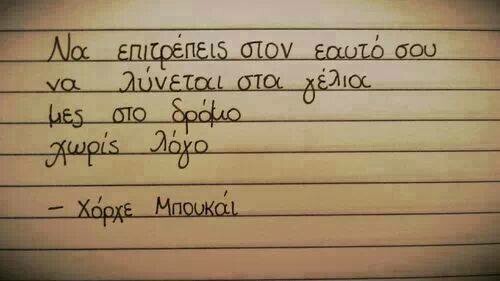 Να επιτρέπεις στον εαυτό σου
να λύνεται στα γέλια
μες στο δρόμο
χωρίς λόγο
- Χόρχε Μπουκάι